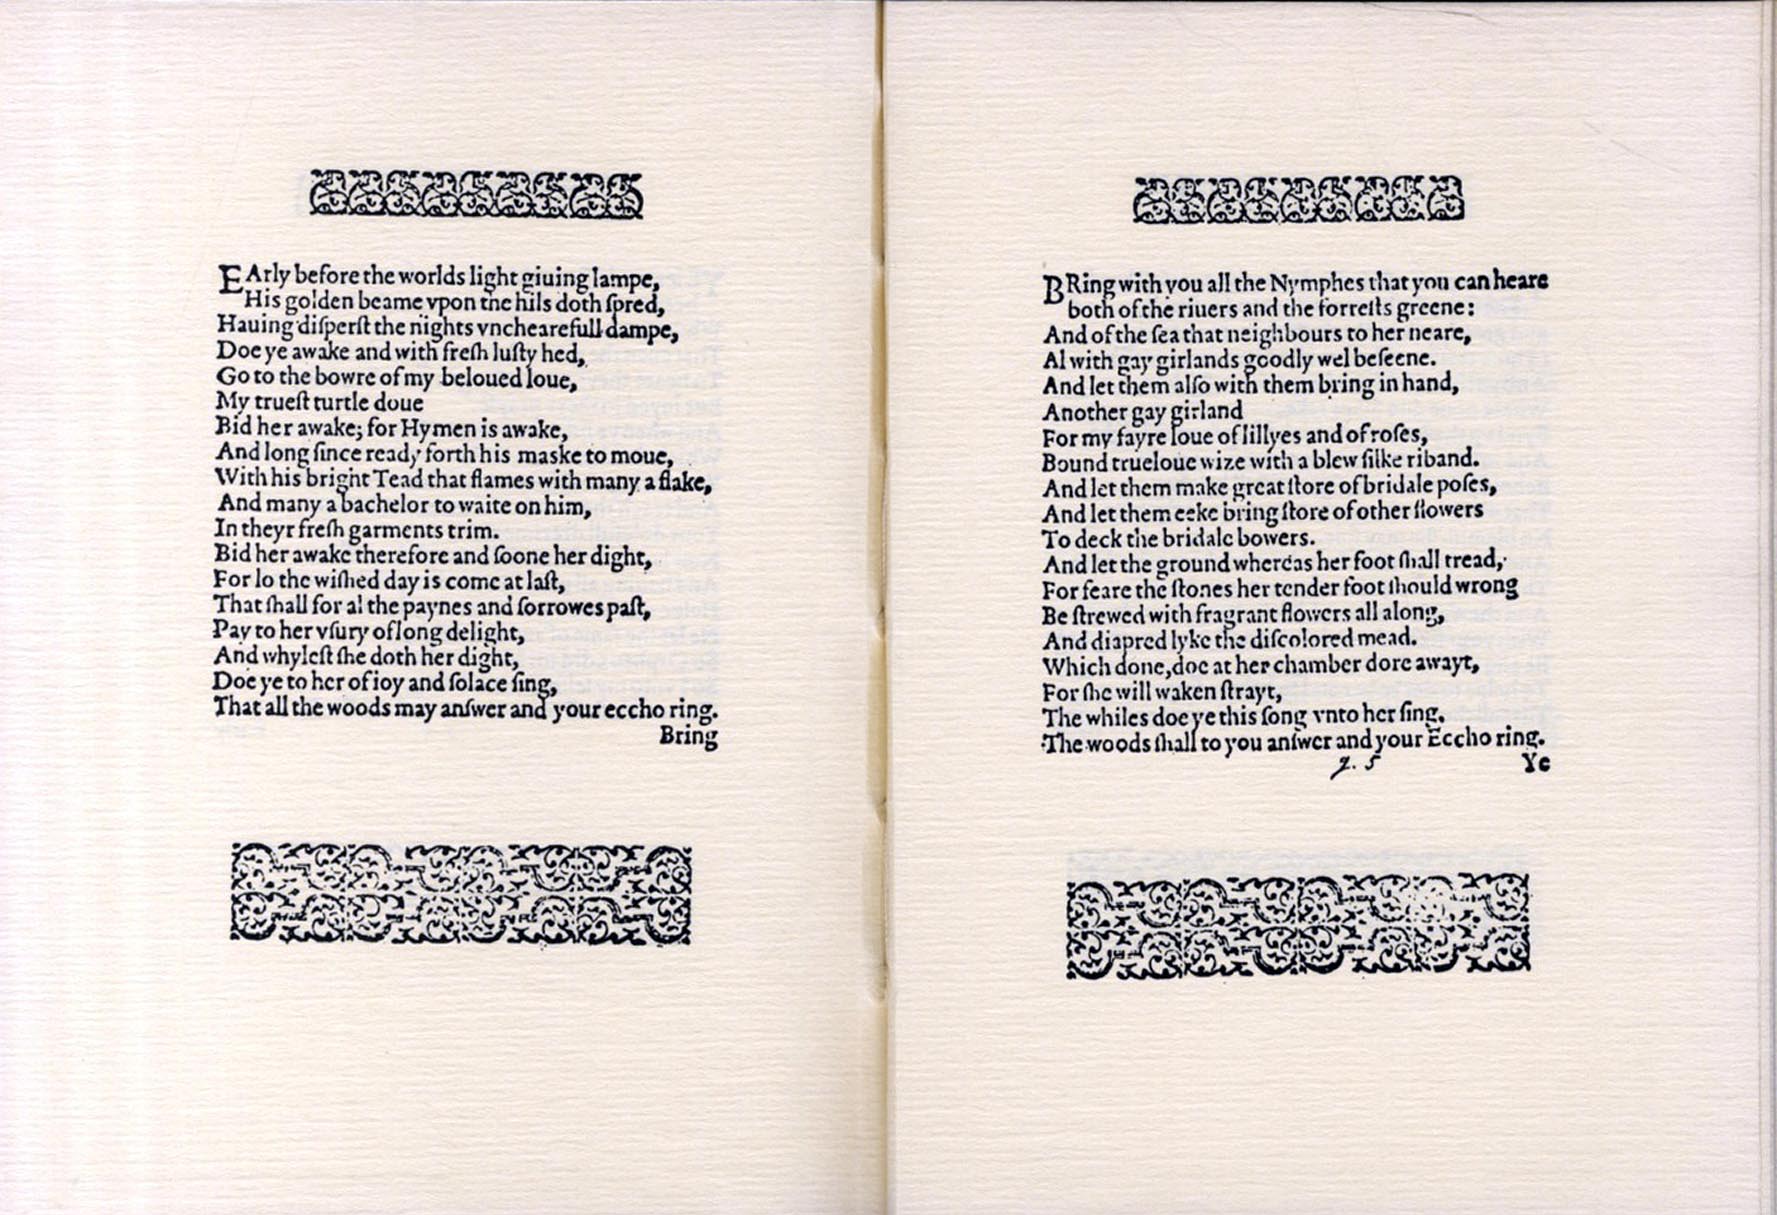 EArly before the worlds light giuing lampe,
His golden beame vpon the hils doth ſpred,
Hauing diſperſt the nights vnchearefull dampe,
Doe ye awake and with freſh luſty hed,
Go to the bowre of my beloued loue,
My trueſt turtle doue
Bid her awake; for Hymen is awake,
And long ſince ready forth his maske to moue,
With his bright Tead that flames with many a flake,
And many a bachelor to waite on him,
In theyr freſh garments trim.
Bid her awake therefore and ſoone her dight,
For lo the wiſhed day is come at laſt,
That ſhall for al the paynes and ſorrowes paſt,
Pay to her vſury of long delight,
And whyleſt ſhe doth her dight,
Doe ye to her of ioy and ſolace ſing,
That all the woods may anſwer and your eccho ring.
Bring
BRing with you all the Nymphes that you can heare
both of the riuers and the forreſts greene:
And of the ſea that neighbours to her neare,
Al with gay girlands goodly wel beſeene.
And let them alſo with them bring in hand,
Another gay girland
For my fayre loue of lillyes and of roſes,
Bound trueloue wize with a blew ſilke riband.
And let them make great ſtore of bridale poſes,
And let them eeke bring ſtore of other flowers
To deck the bridale bowers.
And let the ground whereas her foot ſhall tread,
For feare the ſtones her tender foot ſhould wrong
Be ſtrewed with fragrant flowers all along,
And diapred lyke the diſcolored mead.
Which done, doe at her chamber dore awayt,
For ſhe will waken ſtrayt,
The whiles doe ye this ſong vnto her ſing,
The woods ſhall to you anſwer and your Eccho ring.
g. 5
Ye